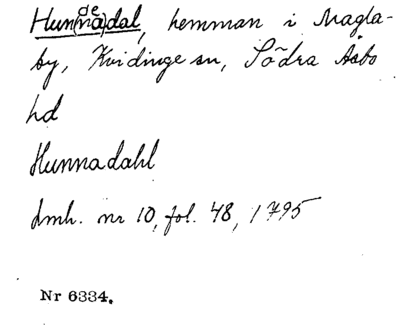 Hun(na)dal, hemman i Magla-
by, Kvidinge sn, Södra Åsbo
hd
Hunnadahl
Lmh. nr 10, fol. 48, 1795
Nr 6334.